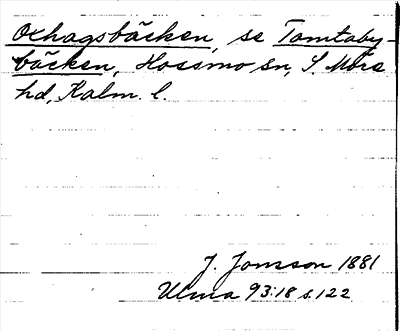 Ochagsbäcken, se Tomtaby-
bäcken, Hossmo sn, S. Möre
hd, Kalm. l.
J. Jonsson 1881
Ulma 93:18 s. 122